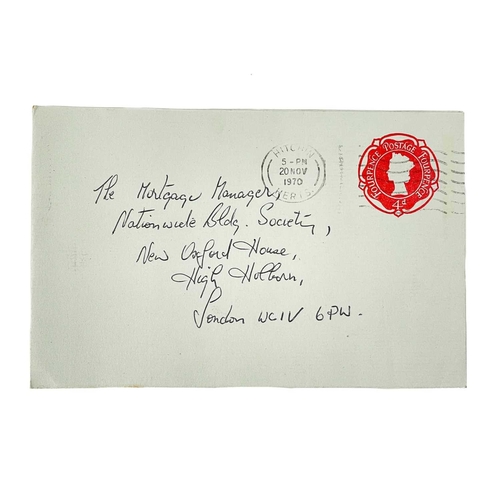 HITCHIN
5-PM
20 NOV
1970
HERTS
FOURPENCE POSTAGE FOURPENCE
4d
The Mortgage Manager,
Nationwide Bldg. Society,
New Oxford House,
High Holborn,
London WC1V 6PW.